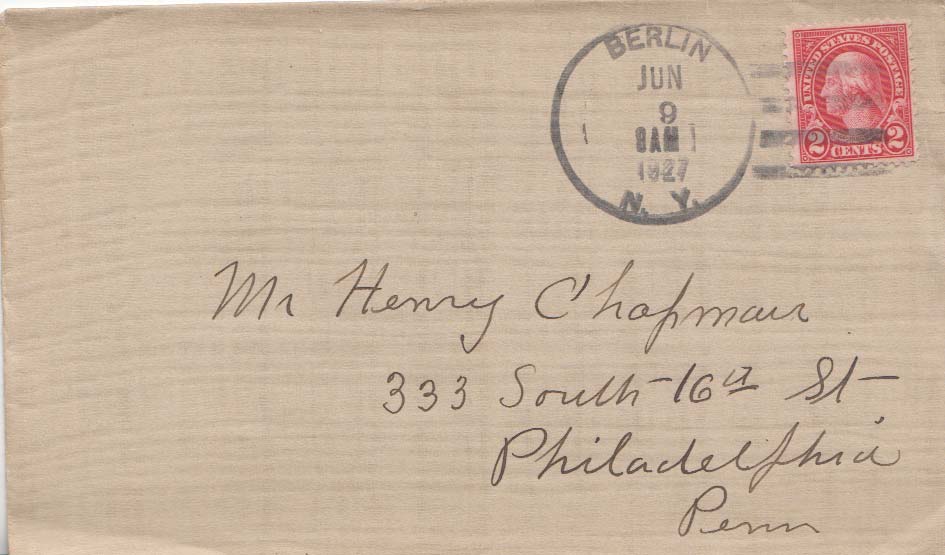 BERLIN
JUN
9
8 AM
1927
N. Y.
UNITED STATES POSTAGE
2 CENTS 2
Mr Henry Chapman
333 South 16th St
Philadelphia
Penn